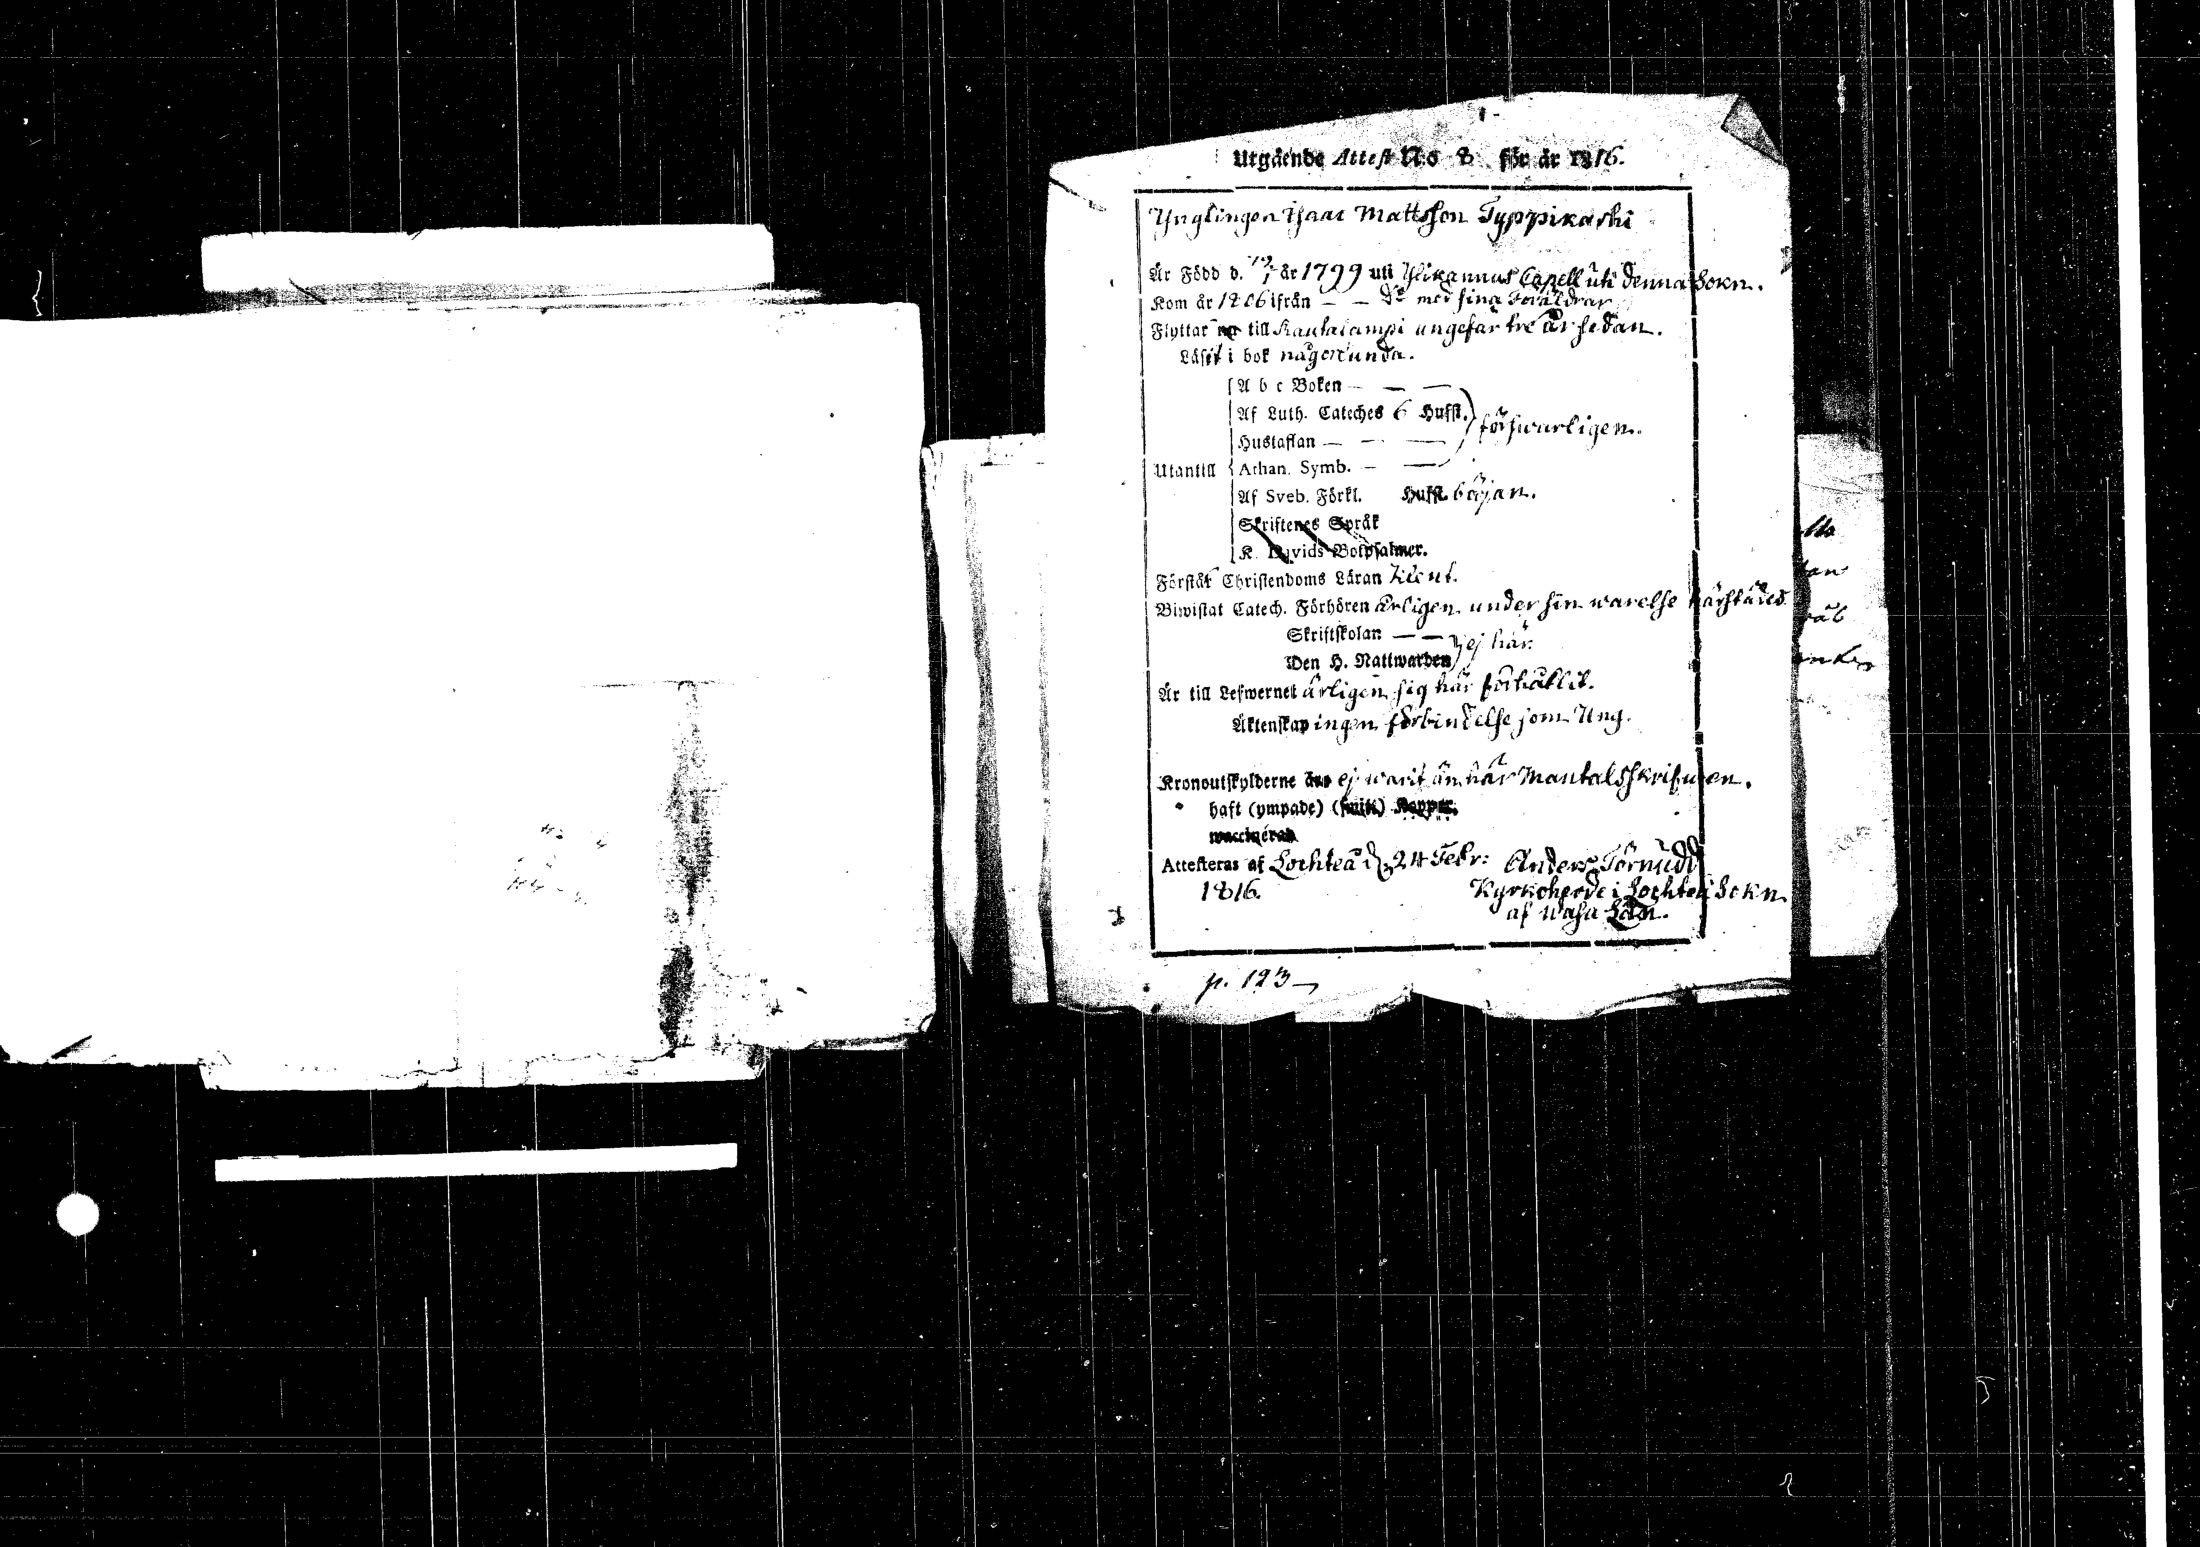 Utgående Attest No 8 för år 1816.
Ynglingen Isaac Mattsson Typpikaski
Är Född d. år 1799 uti Ylikannus Capell uti denna Sokn.
Kom år 1806 ifrån — — do med sina Föräldrar
Flyttar till Rautalampi ungefär tre år sedan.
Läsit i bok någorlunda.
A b c Boken — — —
Af Luth. Cateches 6 Hufst.
försvarligen.
Hustaflan — — —
Utantill Athan. Symb. — —
Af Sveb. Förkl. Hufst. början.
Skriftenes Språk
K. Davids Botpsalmer.
Förstår Christendoms Läran klent.
Biwistat Catech. Förhören årligen under sin warelse härstädes
Skriftskolan — —
ej här.
Den H. Nattwarden
Är till Lefwernet ärligen sig här förhållit.
Äktenskap ingen förbindelse som Ung.
Kronoutskylderne ej warit än här Mantalsskrifwen.
haft (ympade) Koppor.
waccinerad
Attesteras af Lochteå d. 24 Febr: Anders Törnudd
1816. Kyrkoherde i Lochteå Sokn
af Wasa Län.
p. 123